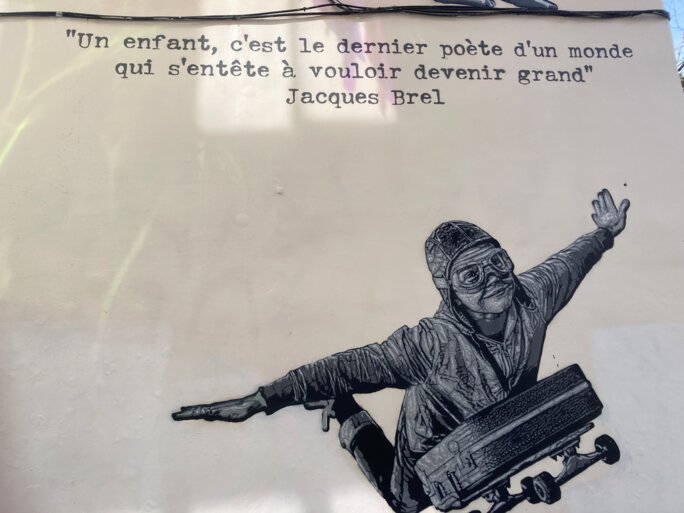 "Un enfant, c'est le dernier poète d'un monde
qui s'entête à vouloir devenir grand"
Jacques Brel